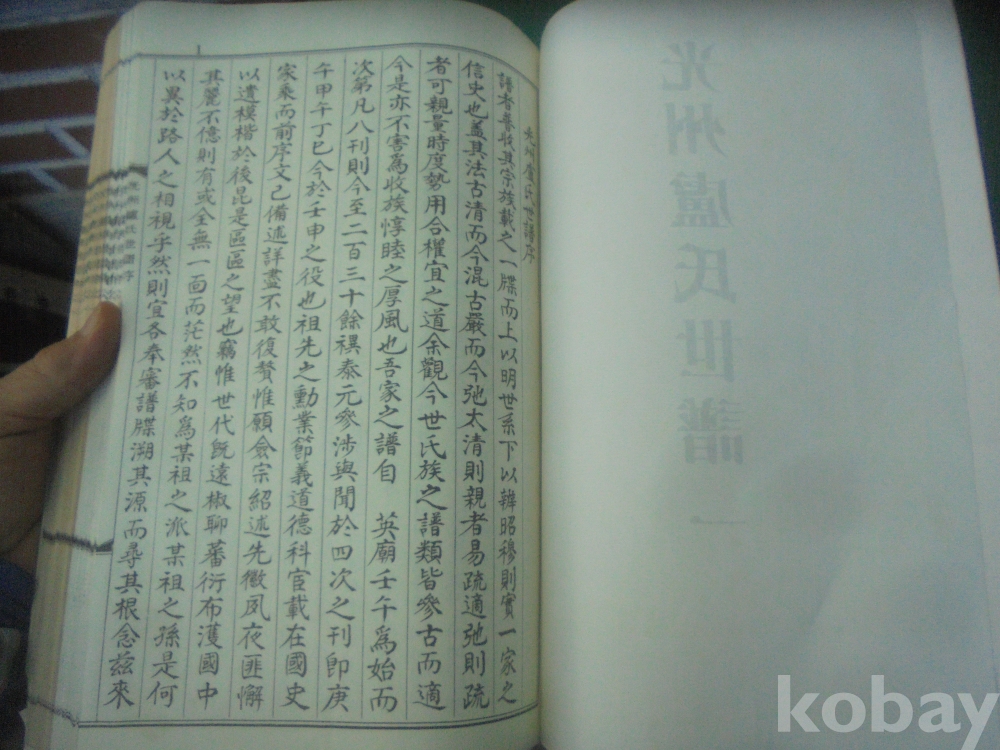 光州盧氏世譜 一
光州盧氏世譜序
譜者普收其宗族載之一牒而上以明世系下以辨昭穆則實一家之
信史也蓋其法古清而今混古嚴而今弛太清則親者易疏適弛則疏
者可親量時度勢用合權宜之道余觀今世氏族之譜類皆參古而適
今是亦不害爲收族惇睦之厚風也吾家之譜自 英廟壬午爲始而
次第凡八刊則今至二百三十餘禩秦元參涉與聞於四次之刊卽庚
午甲午丁巳今於壬申之役也祖先之勳業節義道德科宦載在國史
家乘而前序文已備述詳盡不敢復贅惟願僉宗紹述先徽夙夜匪懈
以遺模楷於後昆是區區之望也竊惟世代旣遠椒聊蕃衍布濩國中
其麗不億則有或全無一面而茫然不知爲某祖之派某祖之孫是何
以異於路人之相視乎然則宜各奉審譜牒溯其源而尋其根念玆來
光州盧氏世譜序
kobay